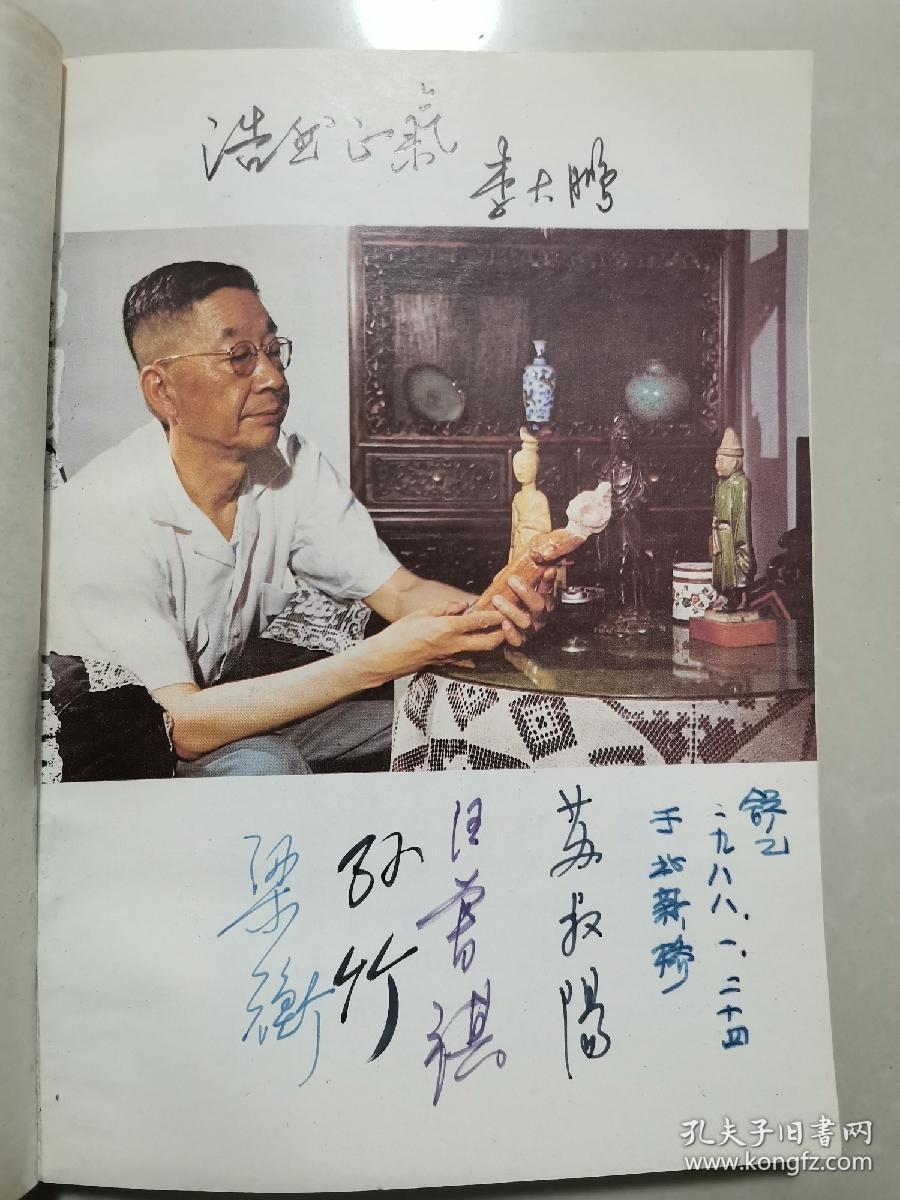 浩然正氣
李大鵬
舒乙
一九八八.一.二十四
于北新桥
苏叔陽
汪曾祺
孙竹
梁衡
孔夫子旧書网
www.kongfz.com